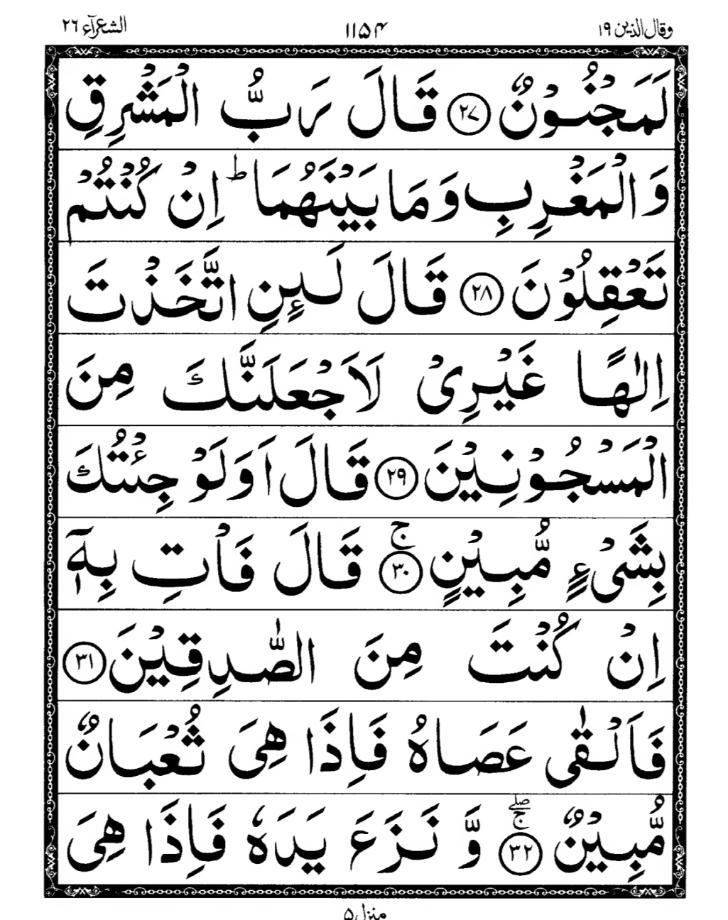 وقال الذین ١٩ ١١٥٤ الشعرآء ٢٦
لَمَجْنُوْنٌ ﴿٢٧﴾ قَالَ رَبُّ الْمَشْرِقِ
وَالْمَغْرِبِ وَمَا بَيْنَهُمَا ؕ اِنْ كُنْتُمْ
تَعْقِلُوْنَ ﴿٢٨﴾ قَالَ لَئِنِ اتَّخَذْتَ
اِلٰهًا غَيْرِیْ لَاَجْعَلَنَّكَ مِنَ
الْمَسْجُوْنِيْنَ ﴿٢٩﴾ قَالَ اَوَلَوْ جِئْتُكَ
بِشَیْءٍ مُّبِيْنٍ ﴿٣٠﴾ۚ قَالَ فَاْتِ بِهٖۤ
اِنْ كُنْتَ مِنَ الصّٰدِقِيْنَ ﴿٣١﴾
فَاَلْقٰی عَصَاهُ فَاِذَا هِیَ ثُعْبَانٌ
مُّبِيْنٌ ﴿٣٢﴾ۖۚ وَّ نَزَعَ يَدَهٗ فَاِذَا هِیَ
منزل ٥